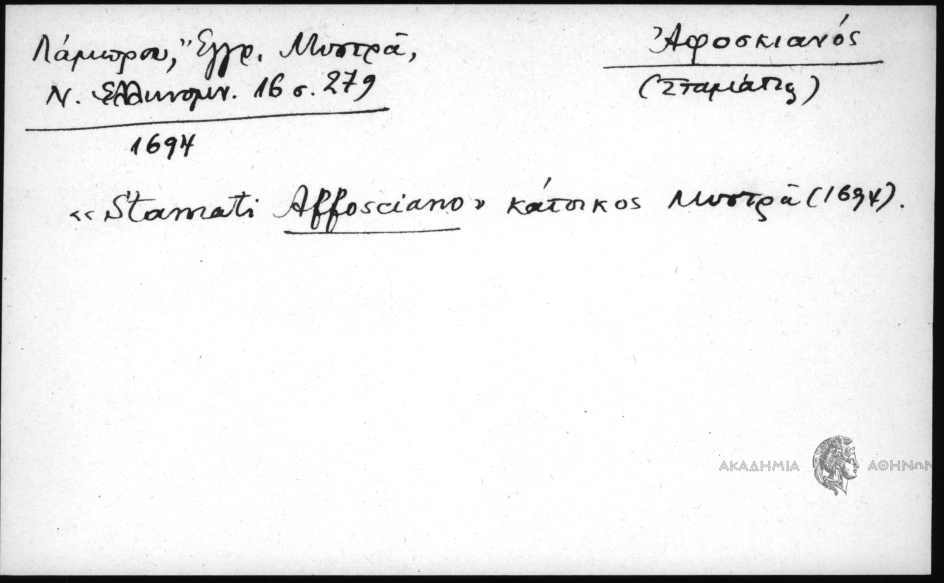 Λάμπρου, Ἔγγρ. Μυστρᾶ,
Ν. Ἑλληνομν. 16 σ. 279
1694
Ἀφοσκιανός
(Σταμάτης)
«Stamati Affosciano» κάτοικος Μυστρᾶ (1694).
ΑΚΑΔΗΜΙΑ ΑΘΗΝΩΝ